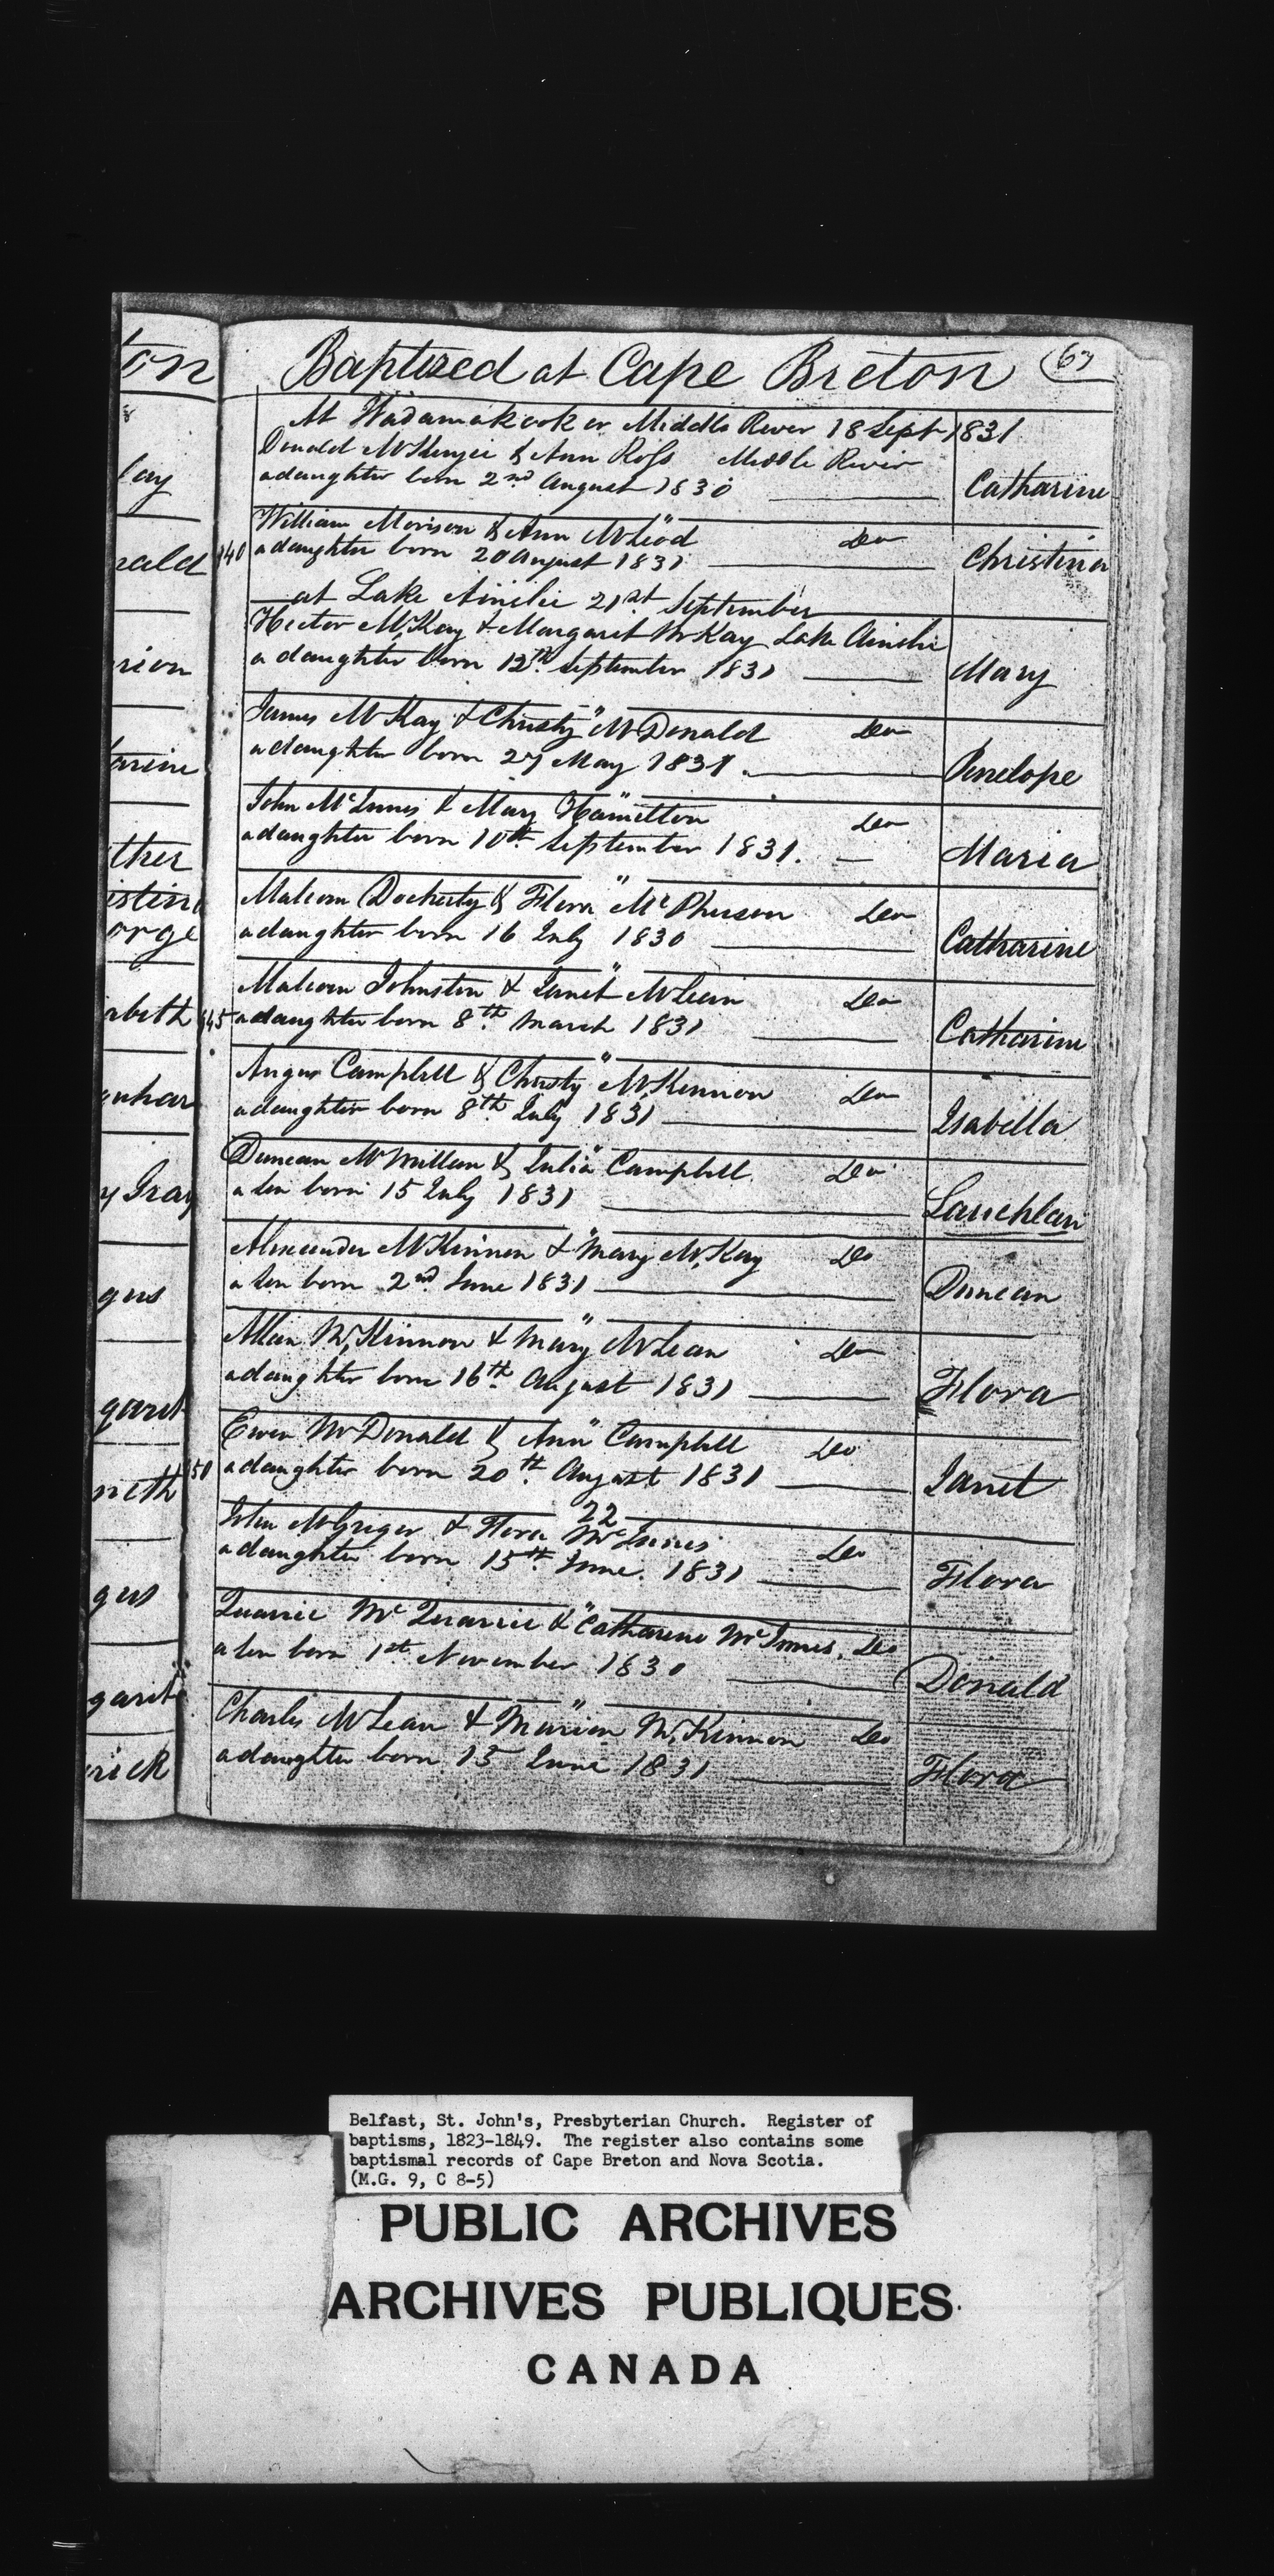 ton
lay
nald
rion
arine
ther
istina
orge
abeth
quhar
y Gray
gus
garet
neth
gus
garet
erick
Baptized at Cape Breton
At Wadamakcook or Middle River 18 Sept 1831
Donald McKenzie & Ann Ross Middle River
a daughter born 2nd August 1830 Catharine
William Morison & Ann McLeod Do
a daughter born 20 August 1831 Christina
at Lake Ainslie 21st September
Hector McKay & Margaret McKay Lake Ainslie
a daughter born 12th September 1831 Mary
James McKay & Christy McDonald Do
a daughter born 27 May 1831. Penelope
John McInnis & Mary Hamilton Do
a daughter born 10th September 1831. Maria
Malcom Docherty & Flora McPherson Do
a daughter born 16 July 1830 Catharine
Malcom Johnston & Janet McLean Do
a daughter born 8th March 1831 Catharine
Angus Campbell & Christy McKinnon Do
a daughter born 8th July 1831 Isabella
Duncan McMillan & Julia Campbell Do
a son born 15 July 1831 Lauchlan
Alexander McKinnon & Mary McKay Do
a son born 2nd June 1831 Duncan
Allan McKinnon & Mary McLean Do
a daughter born 16th August 1831 Flora
Ewen McDonald & Ann Campbell Do
a daughter born 20th August 1831 Janet
22
John McGregor & Flora McInnis Do
a daughter born 15th June 1831 Flora
Quarrie McQuarrie & Catharine McInnis, Do
a son born 1st November 1830 Donald
Charles McLean & Marion McKinnon Do
a daughter born 15 June 1831 Flora
Belfast, St. John's, Presbyterian Church. Register of
baptisms, 1823-1849. The register also contains some
baptismal records of Cape Breton and Nova Scotia.
(M.G. 9, C 8-5)
PUBLIC ARCHIVES
ARCHIVES PUBLIQUES
CANADA